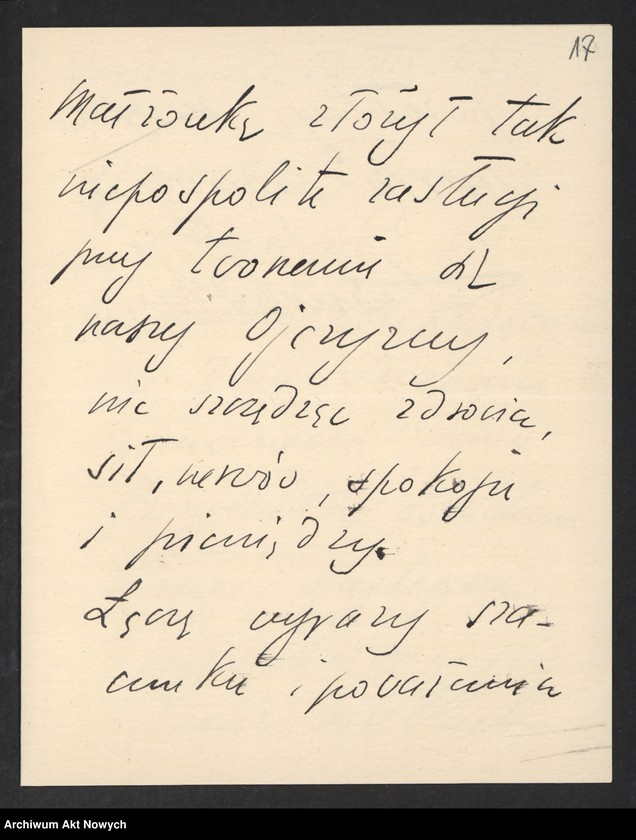 17
Małżonkę złożył tak
niepospolite zasługi
przy tworzeniu dla
naszej Ojczyzny,
nie szczędząc zdrowia,
sił, nerwów, spokoju
i pieniędzy.
Łączę wyrazy sza-
cunku i poważania
Archiwum Akt Nowych